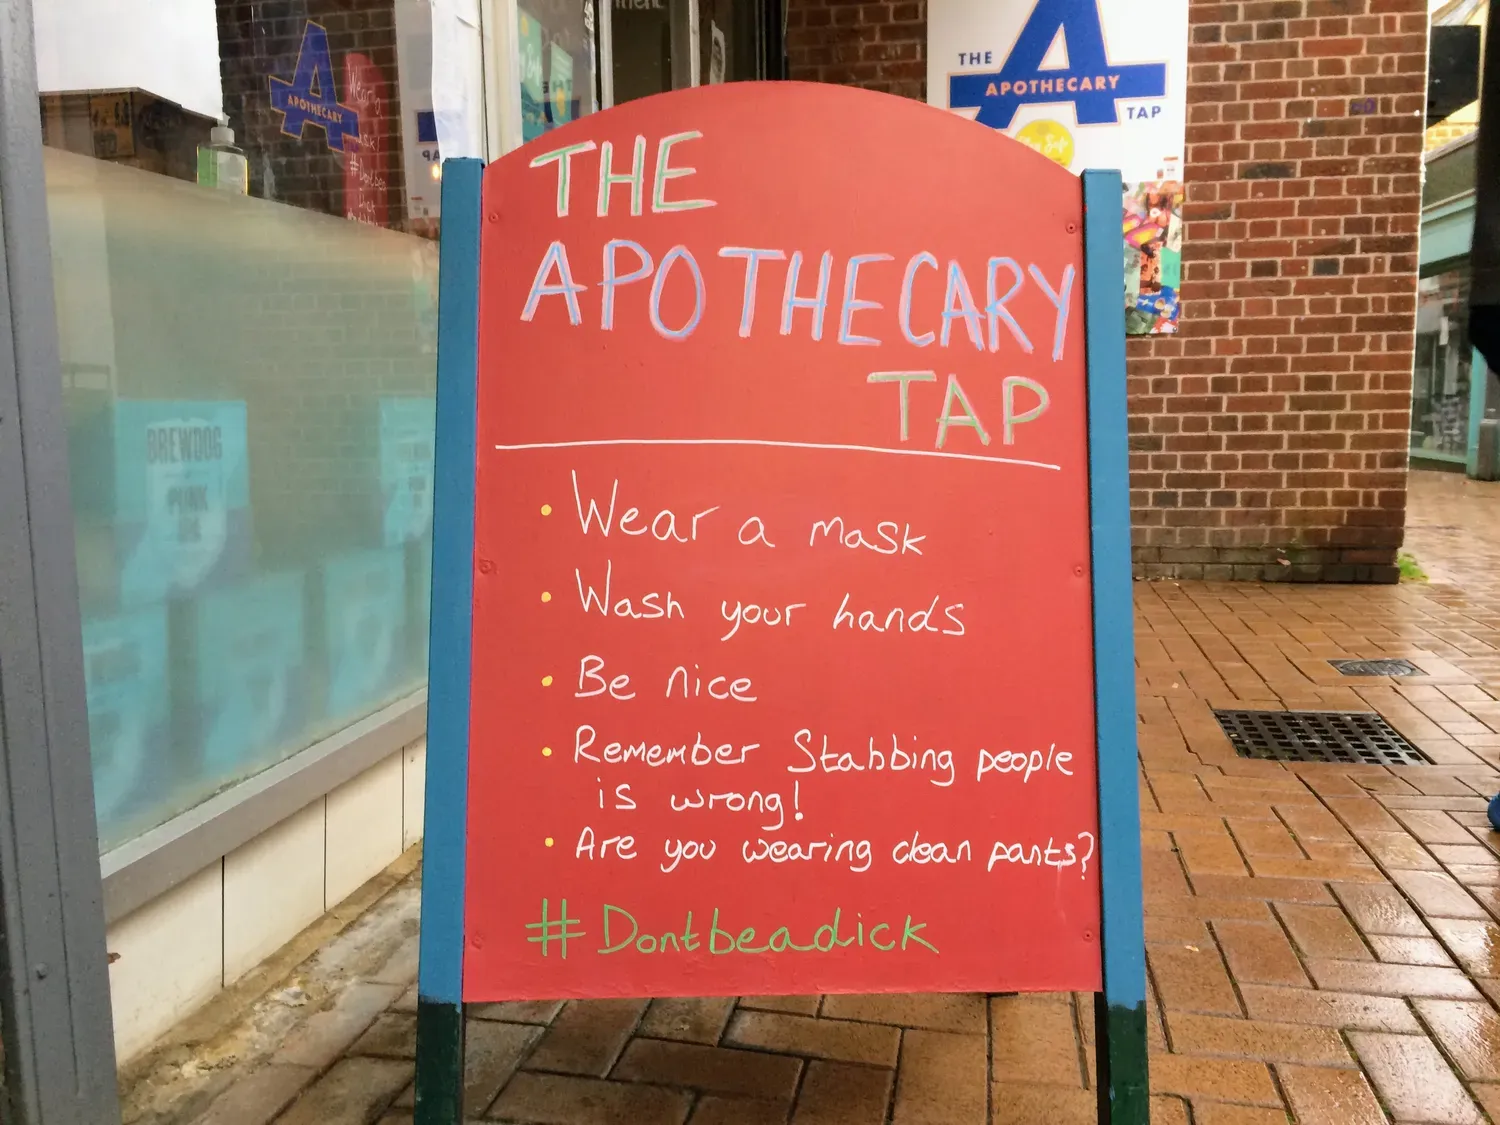 THE
APOTHECARY
TAP
THE
APOTHECARY
TAP
• Wear a mask
• Wash your hands
• Be nice
• Remember Stabbing people
is wrong!
• Are you wearing clean pants?
#Dontbeadick
APOTHECARY
BREWDOG
PUNK